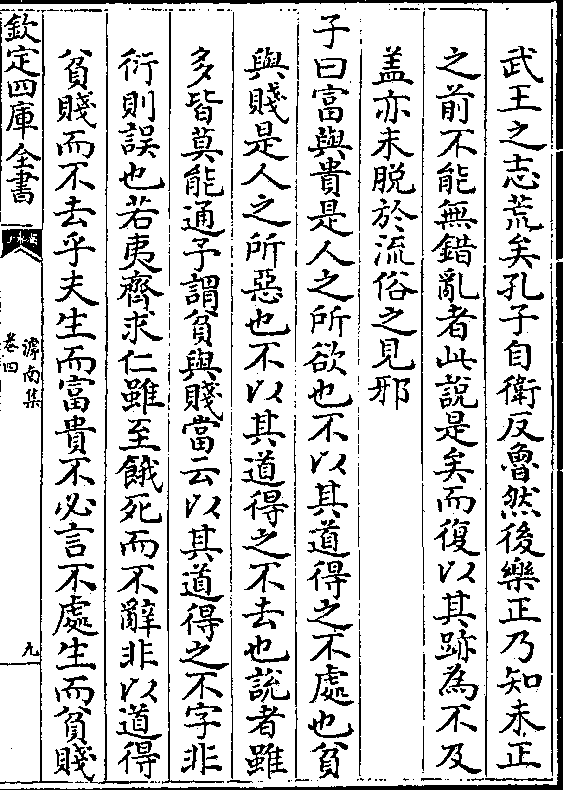 武王之志荒矣孔子自衛反魯然後樂正乃知未正
之前不能無錯亂者此說是矣而復以其跡為不及
盖亦未脱於流俗之見邪
子曰富與貴是人之所欲也不以其道得之不處也貧
與賤是人之所惡也不以其道得之不去也說者雖
多皆莫能通予謂貧與賤當云以其道得之不字非
衍則誤也若夷齊求仁雖至餓死而不辭非以道得
貧賤而不去乎夫生而富貴不必言不處生而貧賤
欽定四庫全書
滹南集
卷四
九